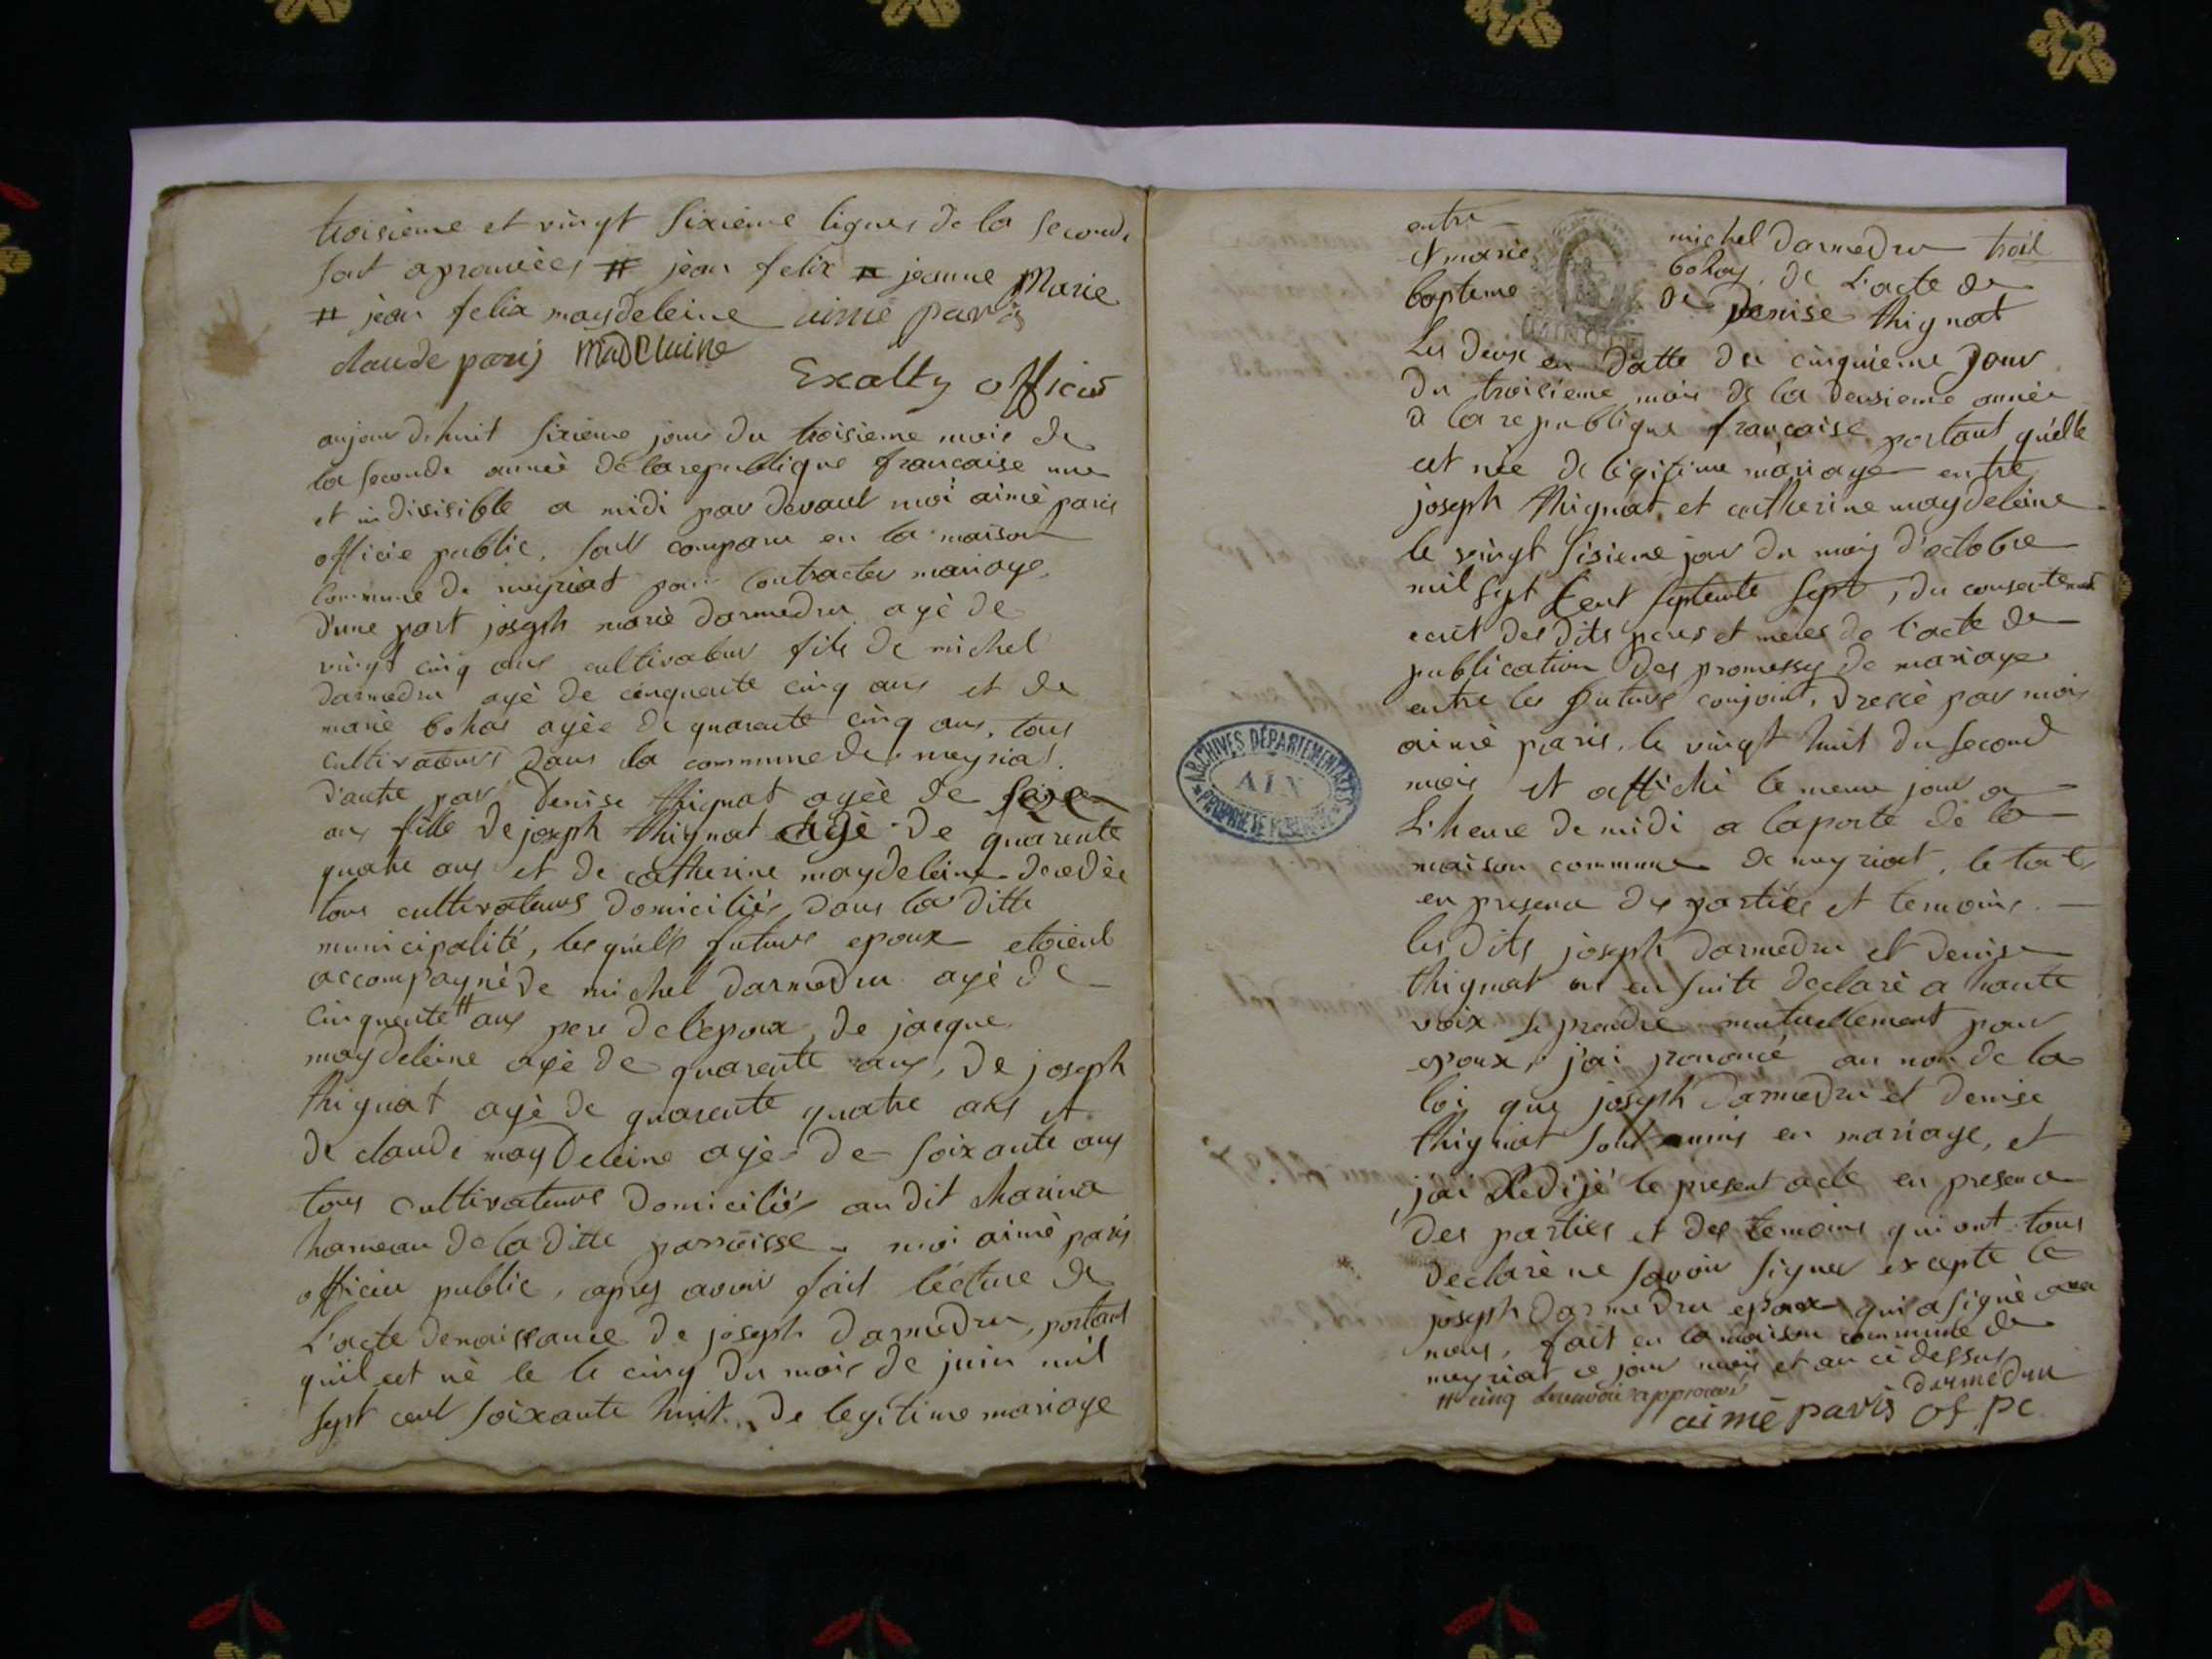 troisième et vingt sixieme lignes de la seconde
sont aprouvées # jean felix # jeanne Marie
# jean felix maydeleine aimé paris
claude paris madelaine
Exalty officié
aujourdehuit sixieme jour du troisieme mois de
la seconde année de la republique francaise une
et indivisible a midi par devant moi aimé paris
officie public, sont comparu en la maison
commune de meyriat pour contracter mariage,
d'une part joseph marie darmedru agé de
vingt cinq ans cultivateur fils de michel
darmedru agé de cinquente cinq ans et de
marie bohas agée de quarente cinq ans, tous
cultivateurs dans la commune de meyriat.
d'autre par denise thignat agée de seize
ans fille de joseph thignat agé de quarente
quatre ans et de catherine maydeleine decedée
tous cultivateurs domiciliés dans la ditte
municipalité, les quells futurs epoux etoient
accompagné de michel darmedru agé de
cinquente # ans pere de l'epoux, de jacque
maydeleine agé de quarente ans, de joseph
thignat agé de quarente quatre ans et
de claude maydeleine agé de soixante ans
tous cultivateurs domiciliés au dit charina
hameau de la ditte parroisse. moi aimé paris
officier public, apres avoir fait lecture de
L'acte de naissance de joseph darmedru, portant
quil est né le le cinq du mois de juin mil
sept cent soixante huit, de legitime mariage
entre michel darmedru
et marie bohas, de L'acte de
bapteme de Denise thignat
Les deux en datte du cinquieme jour
du troisieme mois de la deusieme année
d la republique francaise portant qu'elle
est née de légitime mariage entre
joseph thignat et catherine maydeleine
le vingt sisieme jour du mois d'octobre
mil sept cent septente sept, du consentement
ecrit des dits peres et meres de l'acte de
publication des promesses de mariage
entre les futurs conjoint, dressé par moi
aimé paris, le vingt huit du second
mois et affiché le meme jour a
L'heure de midi a la porte de la
maison commune de meyriat, le tout
en presence des parties et temoins.
les dits joseph darmedru et denise
thignat on en suite declaré a haute
voix se prendre mutuellement pour
epoux, j'ai prononcé au nom de la
loi que joseph darmedru et denise
thignat sont unis en mariage, et
j'ai Redijé le present acte en presence
des parties et des temoins qui ont tous
declaré ne savoir signer excepte le
joseph darmedru epoux qui a signé avec
nous, fait en la maison commune de
meyriat ce jour mois et an ci dessus
# cinq approuvé darmedru
aimé paris of pc
ARCHIVES DÉPARTEMENTALES
AIN
PROPRIÉTÉ PUBLIQUE